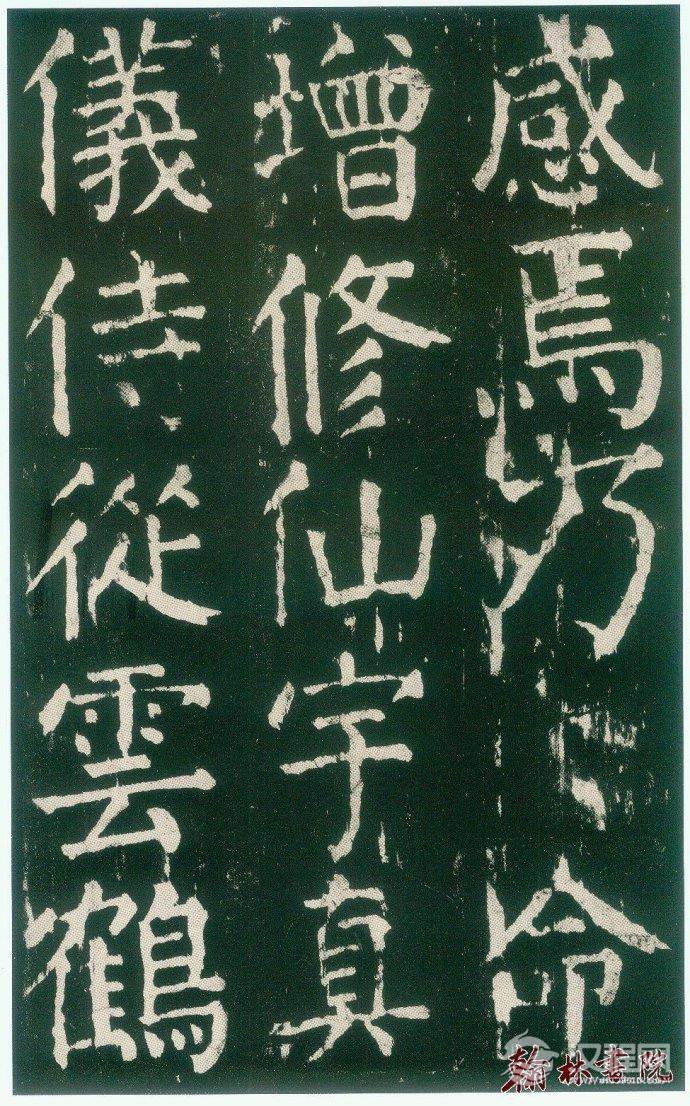 感焉乃命
增修仙宇真
儀侍從雲鶴
汉程网
翰林書院